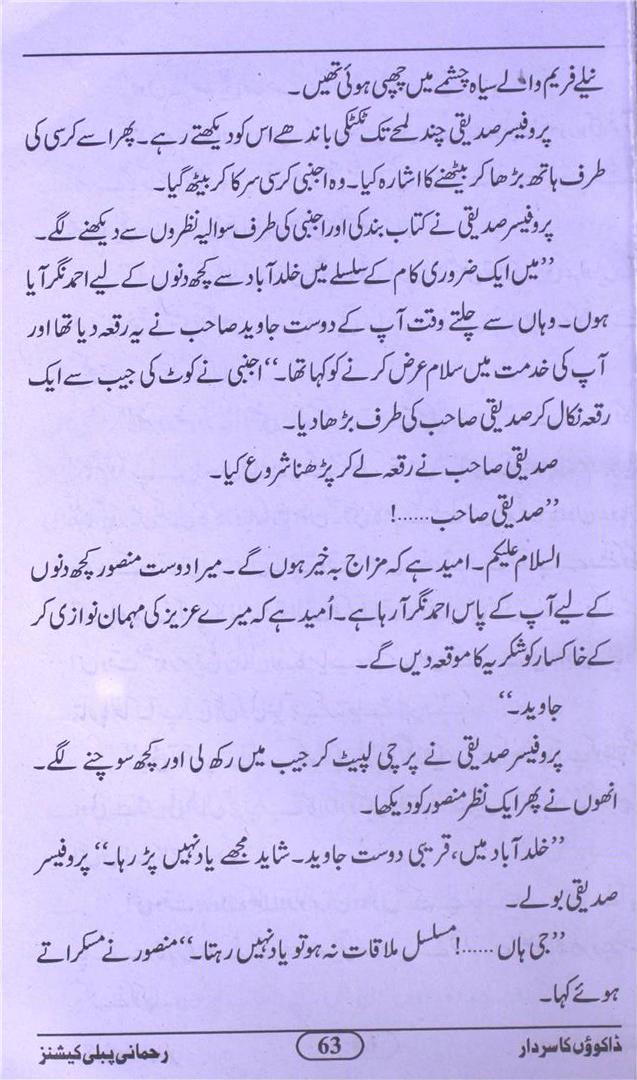 نیلے فریم والے سیاہ چشمے میں چھپی ہوئی تھیں۔
پروفیسر صدیقی چند لمحے تک ٹکٹکی باندھے اس کو دیکھتے رہے۔ پھر اسے کرسی کی
طرف ہاتھ بڑھا کر بیٹھنے کا اشارہ کیا۔ وہ اجنبی کرسی سرکا کر بیٹھ گیا۔
پروفیسر صدیقی نے کتاب بند کی اور اجنبی کی طرف سوالیہ نظروں سے دیکھنے لگے۔
”میں ایک ضروری کام کے سلسلے میں خلد آباد سے کچھ دنوں کے لیے احمد نگر آیا
ہوں۔ وہاں سے چلتے وقت آپ کے دوست جاوید صاحب نے یہ رقعہ دیا تھا اور
آپ کی خدمت میں سلام عرض کرنے کو کہا تھا۔“ اجنبی نے کوٹ کی جیب سے ایک
رقعہ نکال کر صدیقی صاحب کی طرف بڑھا دیا۔
صدیقی صاحب نے رقعہ لے کر پڑھنا شروع کیا۔
”صدیقی صاحب......!
السلام علیکم۔ امید ہے کہ مزاج بہ خیر ہوں گے۔ میرا دوست منصور کچھ دنوں
کے لیے آپ کے پاس احمد نگر آرہا ہے۔ اُمید ہے کہ میرے عزیز کی مہمان نوازی کر
کے خاکسار کو شکریہ کا موقعہ دیں گے۔
جاوید۔“
پروفیسر صدیقی نے پرچی لپیٹ کر جیب میں رکھ لی اور کچھ سوچنے لگے۔
انھوں نے پھر ایک نظر منصور کو دیکھا۔
”خلد آباد میں، قریبی دوست جاوید۔ شاید مجھے یاد نہیں پڑ رہا۔“ پروفیسر
صدیقی بولے۔
”جی ہاں......! مسلسل ملاقات نہ ہو تو یاد نہیں رہتا۔“ منصور نے مسکراتے
ہوئے کہا۔
ڈاکوؤں کا سردار 63 رحمانی پبلی کیشنز